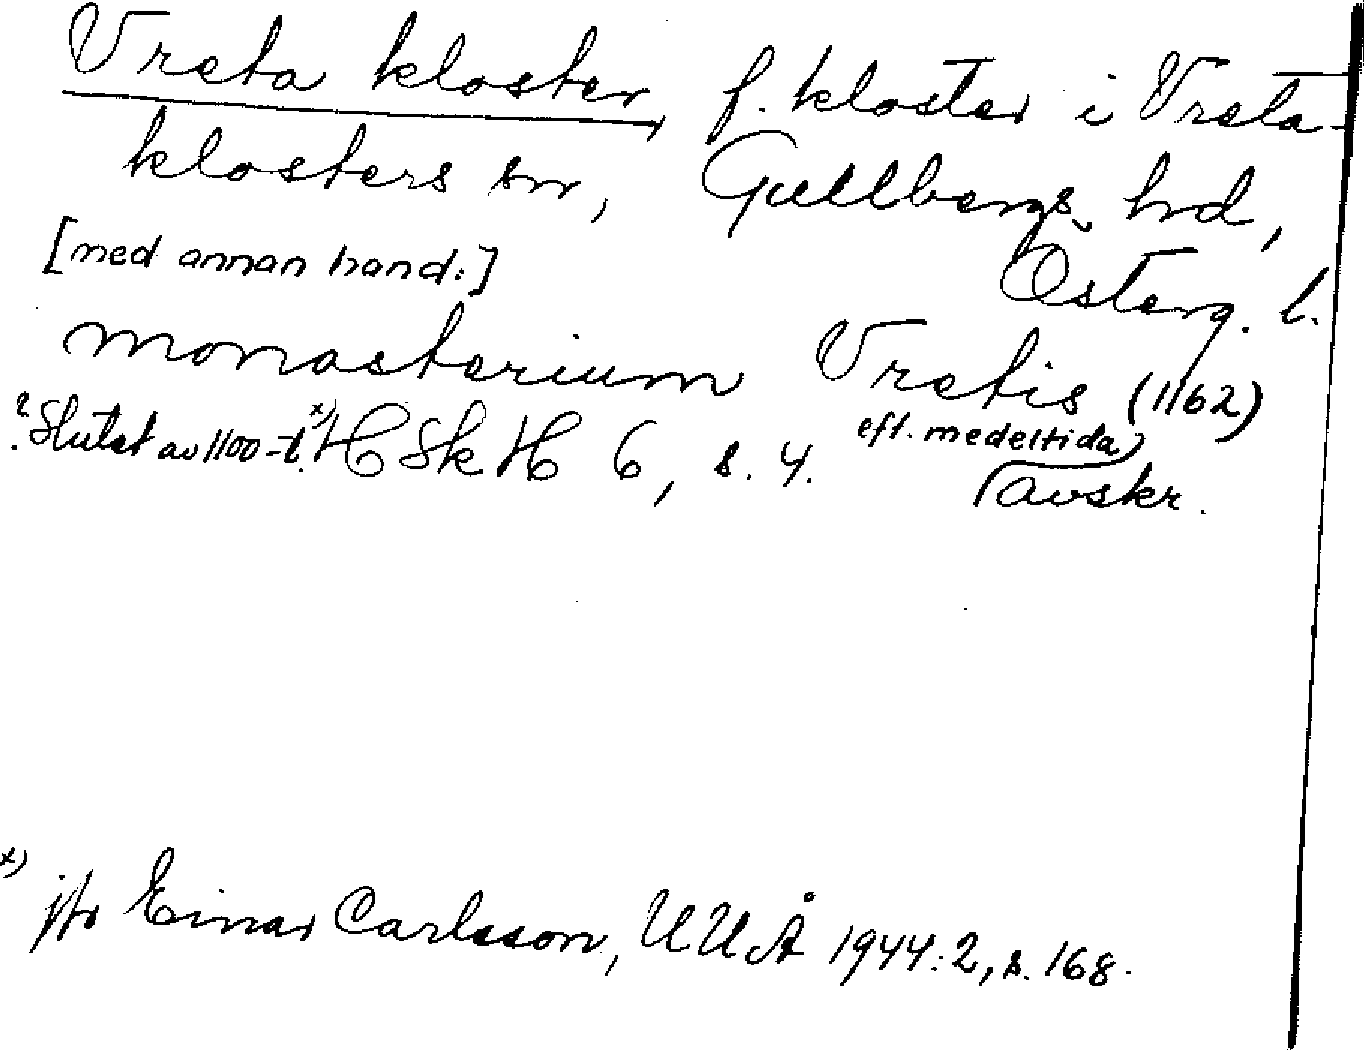 Vreta kloster, f. kloster i Vreta-
klosters sn, Gullbergs hd,
[med annan hand:] Österg. l.
monasterium Vretis (1162)
eft. medeltida avskr.
? Slutet av 1100-t. x) HSkH 6, s. 4.
x) jfr Einar Carlsson, UUÅ 1944:2, s. 168.